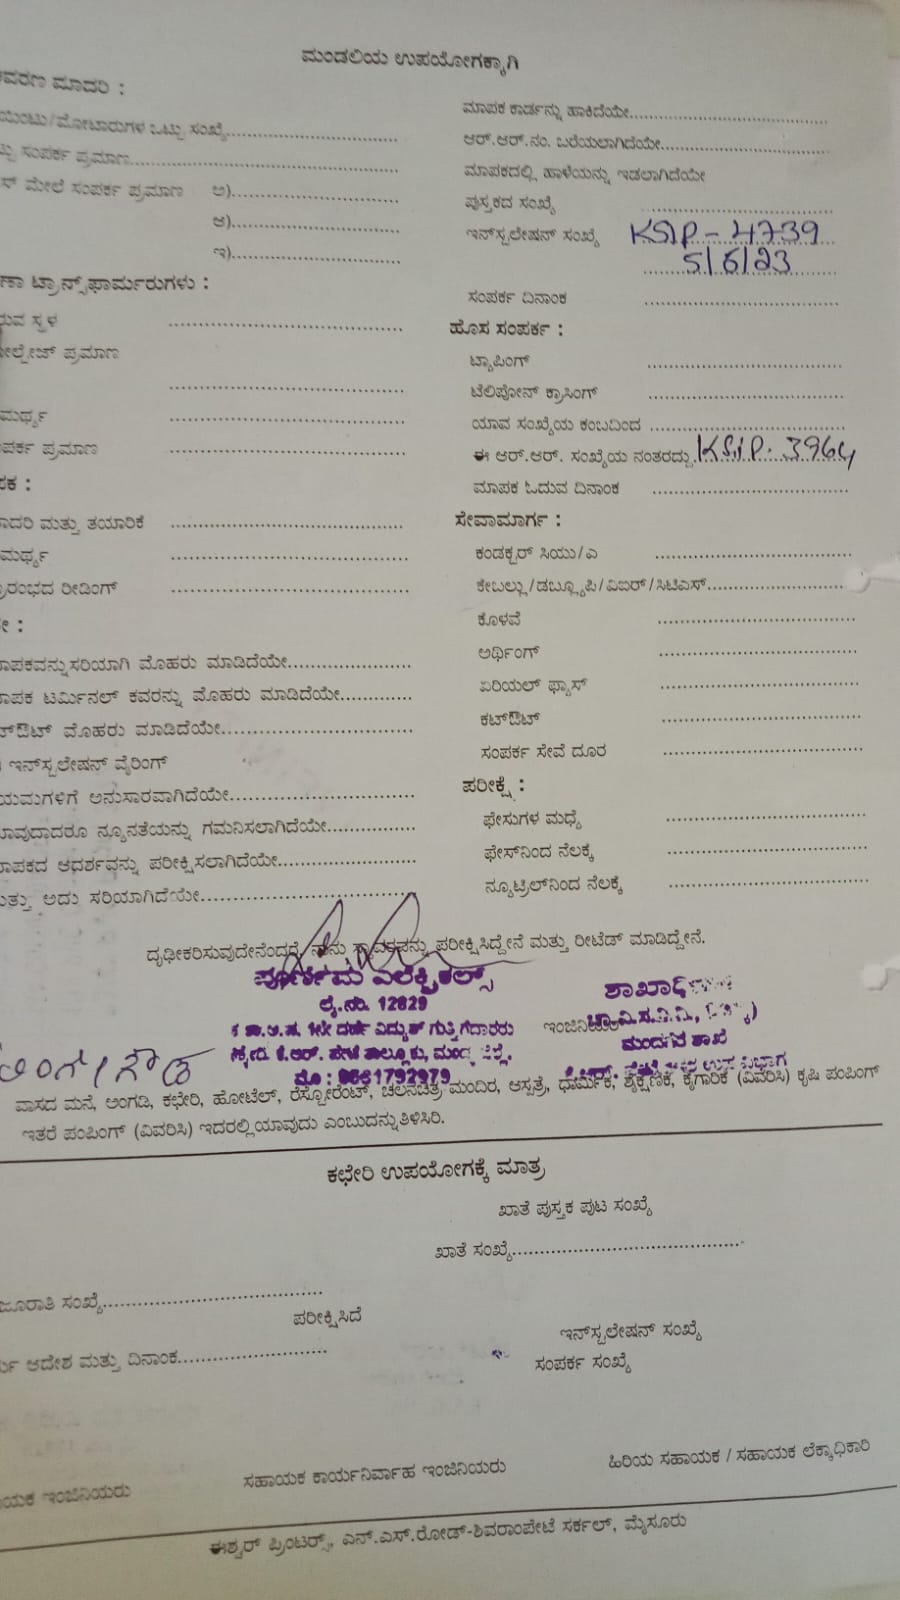 ಮಂಡಲಿಯ ಉಪಯೋಗಕ್ಕಾಗಿ
ಮಾದರಿ :
/ಮೋಟಾರುಗಳ ಒಟ್ಟು ಸಂಖ್ಯೆ
ಸಂಪರ್ಕ ಪ್ರಮಾಣ
ಮೇಲೆ ಸಂಪರ್ಕ ಪ್ರಮಾಣ ಅ)
ಆ)
ಇ)
ಟ್ರಾನ್ಸ್‌ಫಾರ್ಮರುಗಳು :
ಸ್ಥಳ
ಪ್ರಮಾಣ
ಪ್ರಮಾಣ
ಮತ್ತು ತಯಾರಿಕೆ
ರೀಡಿಂಗ್
ಮೊಹರು ಮಾಡಿದೆಯೇ
ಟರ್ಮಿನಲ್ ಕವರನ್ನು ಮೊಹರು ಮಾಡಿದೆಯೇ
ಮೊಹರು ಮಾಡಿದೆಯೇ
ಇನ್‌ಸ್ಟಲೇಷನ್ ವೈರಿಂಗ್
ಅನುಸಾರವಾಗಿದೆಯೇ
ನ್ಯೂನತೆಯನ್ನು ಗಮನಿಸಲಾಗಿದೆಯೇ
ಆದರ್ಶವನ್ನು ಪರೀಕ್ಷಿಸಲಾಗಿದೆಯೇ
ಅದು ಸರಿಯಾಗಿದೆಯೇ
ಮಾಪಕ ಕಾರ್ಡನ್ನು ಹಾಕಿದೆಯೇ
ಆರ್.ಆರ್.ನಂ. ಬರೆಯಲಾಗಿದೆಯೇ
ಮಾಪಕದಲ್ಲಿ ಹಾಳೆಯನ್ನು ಇಡಲಾಗಿದೆಯೇ
ಪುಸ್ತಕದ ಸಂಖ್ಯೆ
ಇನ್‌ಸ್ಟಲೇಷನ್ ಸಂಖ್ಯೆ KSIP - 4739
5/6/23
ಸಂಪರ್ಕ ದಿನಾಂಕ
ಹೊಸ ಸಂಪರ್ಕ :
ಟ್ಯಾಪಿಂಗ್
ಟೆಲಿಪೋನ್ ಕ್ರಾಸಿಂಗ್
ಯಾವ ಸಂಖ್ಯೆಯ ಕಂಬದಿಂದ
ಈ ಆರ್.ಆರ್. ಸಂಖ್ಯೆಯ ನಂತರದ್ದು KSIP. 3964
ಮಾಪಕ ಓದುವ ದಿನಾಂಕ
ಸೇವಾಮಾರ್ಗ :
ಕಂಡಕ್ಟರ್ ಸಿಯು/ಎ
ಕೇಬಲ್ಲು/ಡಬ್ಲ್ಯೂಪಿ/ವಿಐರ್/ಸಿಟಿಎಸ್
ಕೊಳವೆ
ಅರ್ಥಿಂಗ್
ಏರಿಯಲ್ ಫ್ಯೂಸ್
ಕಟ್‌ಔಟ್
ಸಂಪರ್ಕ ಸೇವೆ ದೂರ
ಪರೀಕ್ಷೆ :
ಫೇಸುಗಳ ಮಧ್ಯೆ
ಫೇಸ್‌ನಿಂದ ನೆಲಕ್ಕೆ
ನ್ಯೂಟ್ರಲ್‌ನಿಂದ ನೆಲಕ್ಕೆ
ದೃಢೀಕರಿಸುವುದೇನೆಂದರೆ, ನಾನು ಸ್ಥಾವರವನ್ನು ಪರೀಕ್ಷಿಸಿದ್ದೇನೆ ಮತ್ತು ರೀಟೆಡ್ ಮಾಡಿದ್ದೇನೆ.
ಎಲೆಕ್ಟ್ರಿಕಲ್ಸ್
ಲೈ.ನಂ. 12829
ದರ್ಜೆ ವಿದ್ಯುತ್ ಗುತ್ತಿಗೆದಾರರು
ವಾಸದ ಮನೆ, ಅಂಗಡಿ, ಕಛೇರಿ, ಹೋಟೆಲ್, ರೆಸ್ಟೋರೆಂಟ್, ಚಲನಚಿತ್ರ ಮಂದಿರ, ಆಸ್ಪತ್ರೆ, ಧಾರ್ಮಿಕ, ಶೈಕ್ಷಣಿಕ, ಕೈಗಾರಿಕೆ (ವಿವರಿಸಿ) ಕೃಷಿ ಪಂಪಿಂಗ್
ಇತರೆ ಪಂಪಿಂಗ್ (ವಿವರಿಸಿ) ಇದರಲ್ಲಿ ಯಾವುದು ಎಂಬುದನ್ನು ತಿಳಿಸಿರಿ.
ಕಛೇರಿ ಉಪಯೋಗಕ್ಕೆ ಮಾತ್ರ
ಖಾತೆ ಪುಸ್ತಕ ಪುಟ ಸಂಖ್ಯೆ
ಖಾತೆ ಸಂಖ್ಯೆ
ಸಂಖ್ಯೆ
ಪರೀಕ್ಷಿಸಿದೆ
ಇನ್‌ಸ್ಟಲೇಷನ್ ಸಂಖ್ಯೆ
ಆದೇಶ ಮತ್ತು ದಿನಾಂಕ
ಸಂಪರ್ಕ ಸಂಖ್ಯೆ
ಇಂಜಿನಿಯರು ಸಹಾಯಕ ಕಾರ್ಯನಿರ್ವಾಹ ಇಂಜಿನಿಯರು ಹಿರಿಯ ಸಹಾಯಕ / ಸಹಾಯಕ ಲೆಕ್ಕಾಧಿಕಾರಿ
ಈಶ್ವರ್ ಪ್ರಿಂಟರ್ಸ್, ಎನ್.ಎಸ್.ರೋಡ್-ಶಿವರಾಂಪೇಟೆ ಸರ್ಕಲ್, ಮೈಸೂರು